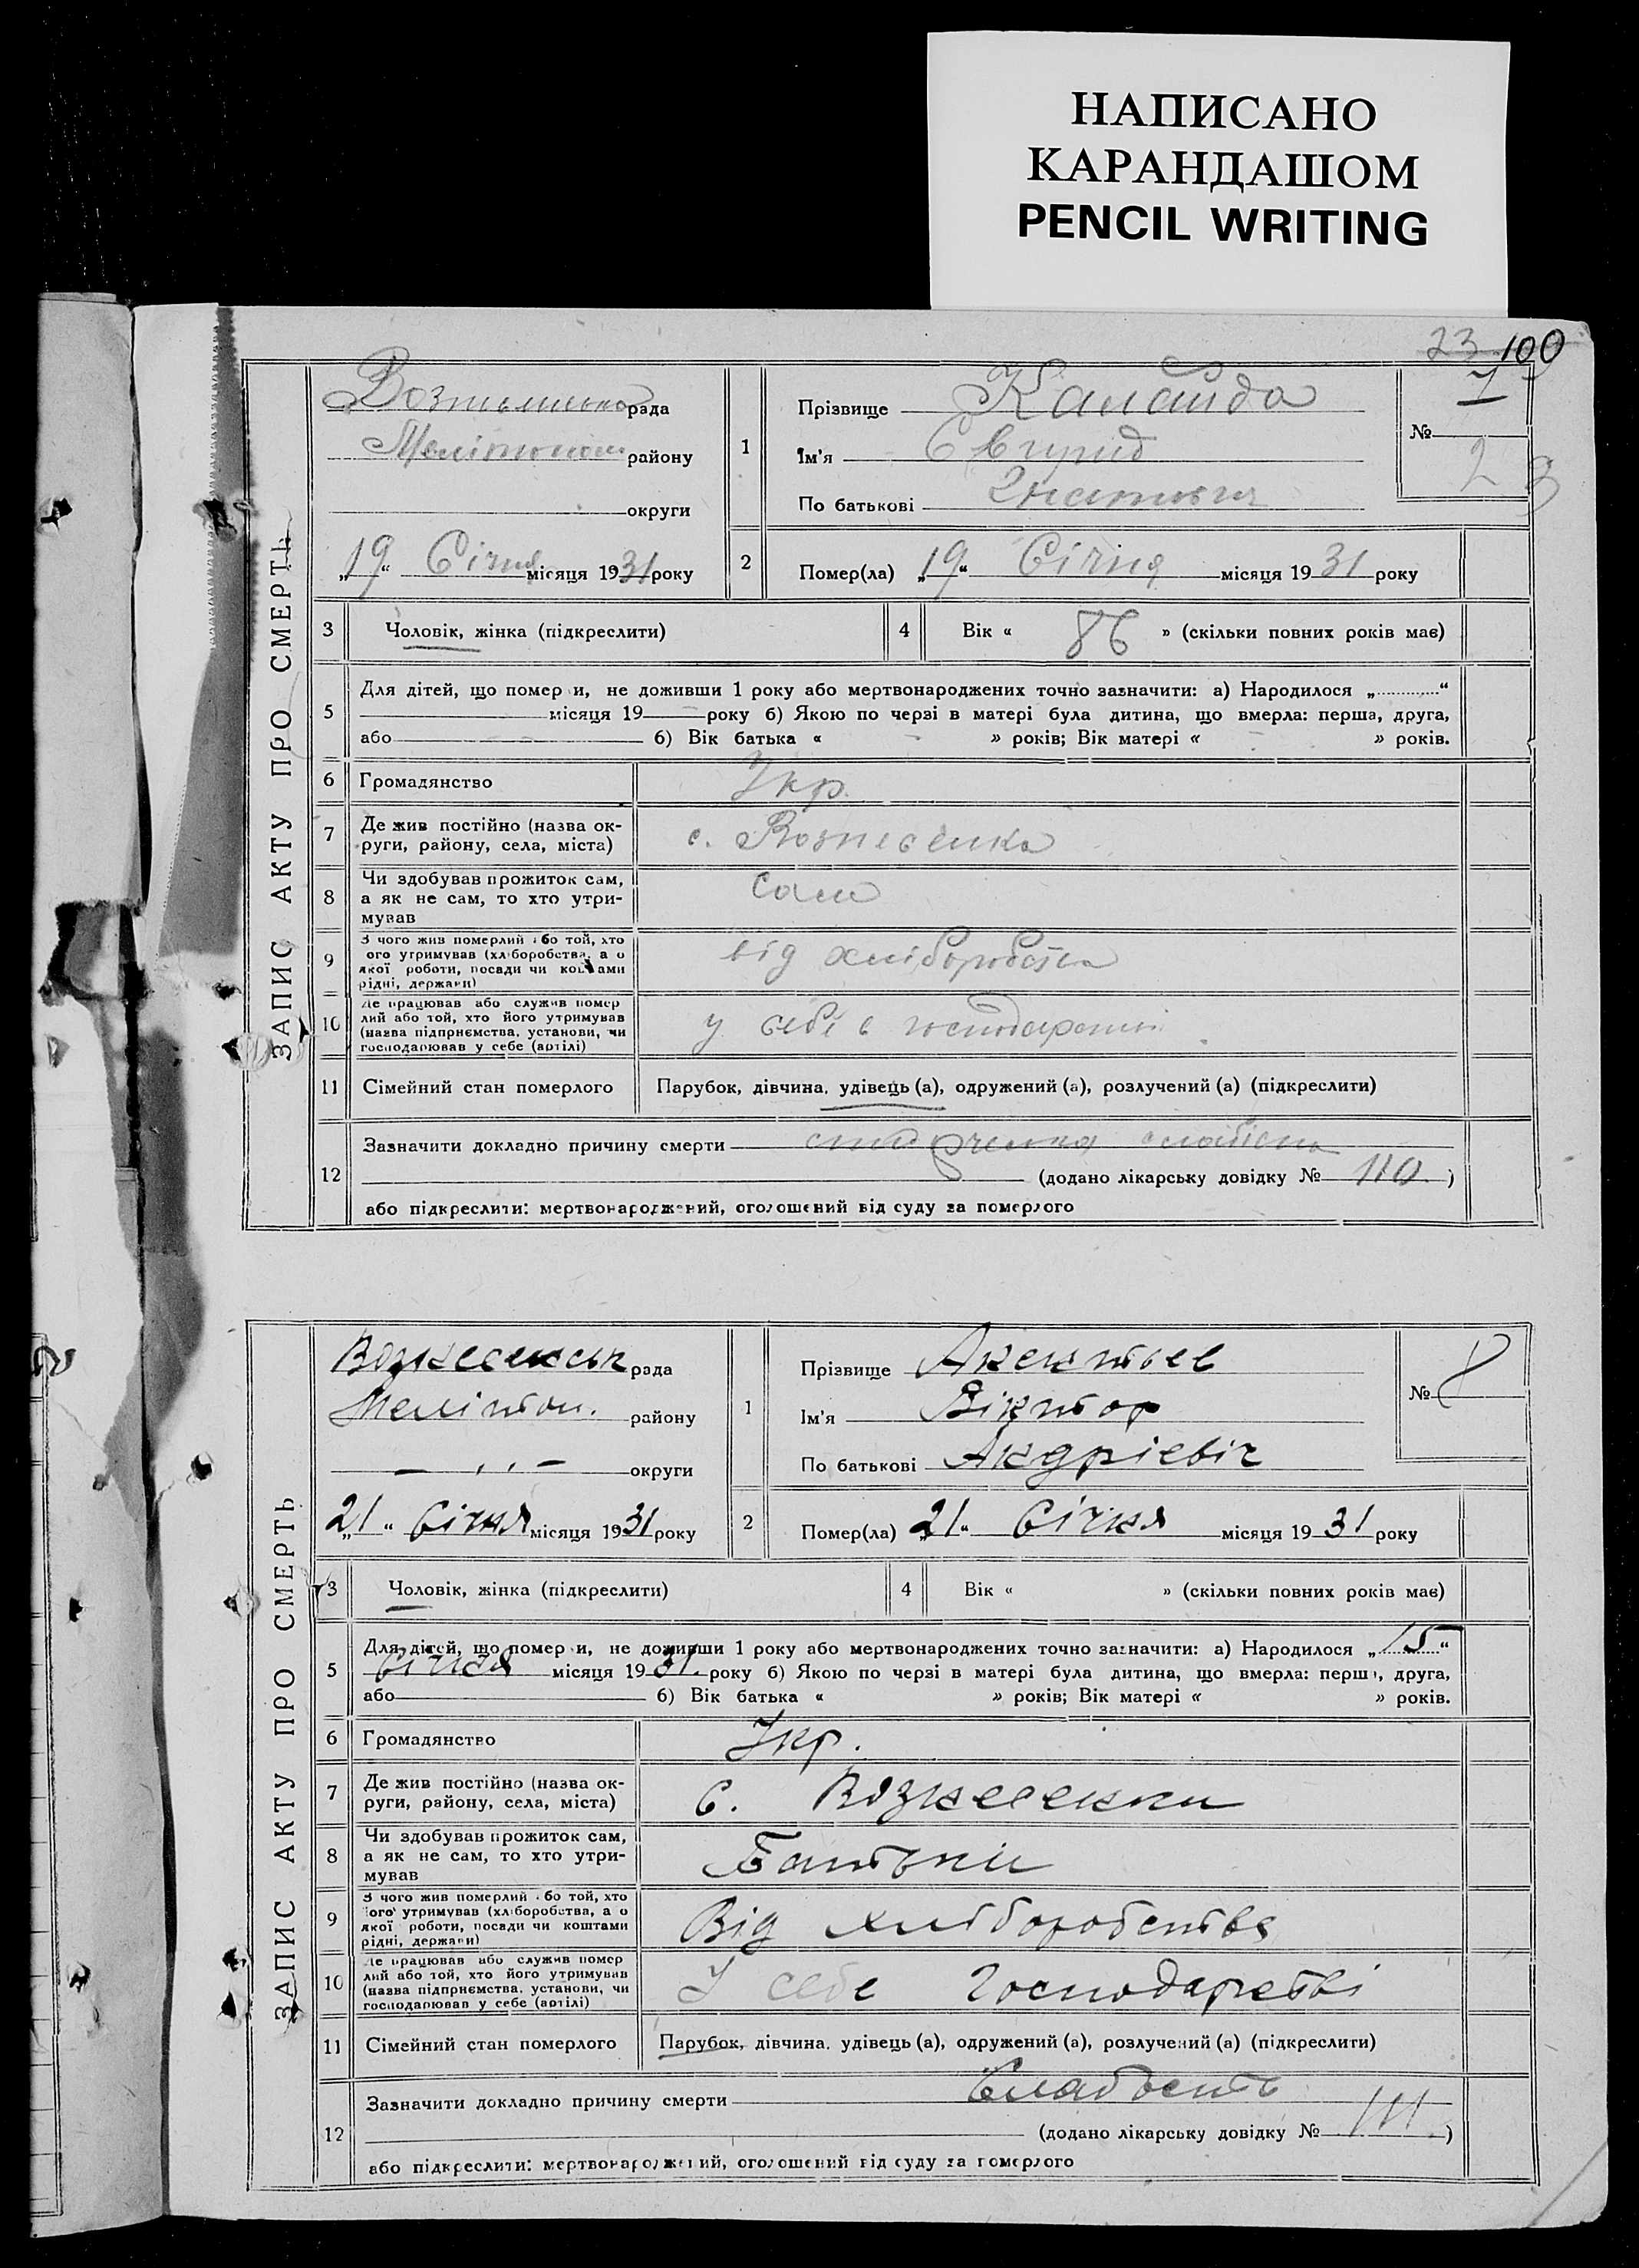 НАПИСАНО
КАРАНДАШОМ
PENCIL WRITING
23 100
ЗАПИС АКТУ ПРО СМЕРТЬ
рада
району
округи
„19“ Січня місяця 1931 року
1
Прізвище
Ім'я
По батькові
№ 7
2 Помер(ла) „19“ Січня місяця 1931 року
3 Чоловік, жінка (підкреслити)
4 Вік « 86 » (скільки повних років має)
5 Для дітей, що померли, не доживши 1 року або мертвонароджених точно зазначити: а) Народилося „ “
місяця 19 року б) Якою по черзі в матері була дитина, що вмерла: перша, друга,
або б) Вік батька « » років; Вік матері « » років.
6 Громадянство Укр.
7 Де жив постійно (назва ок-
руги, району, села, міста) с. Вознесенка
8 Чи здобував прожиток сам,
а як не сам, то хто утри-
мував Сам
9 З чого жив померлий або той, хто
його утримував (хліборобства, або
якої роботи, посади чи коштами
рідні, держави) від хліборобства
10 Де працював або служив помер
лий або той, хто його утримував
(назва підприємства, установи, чи
господарював у себе (артілі) у себе в господарстві
11 Сімейний стан померлого Парубок, дівчина, удівець (а), одружений (а), розлучений (а) (підкреслити)
12 Зазначити докладно причину смерти
(додано лікарську довідку № 110)
або підкреслити: мертвонароджений, оголошений від суду за померлого
ЗАПИС АКТУ ПРО СМЕРТЬ
Вознесенськ рада
Меліton. району
— ,, — округи
„21“ Січня місяця 1931 року
1
Прізвище
Ім'я Віктор
По батькові Андрієвіч
№ 8
2 Помер(ла) „21“ Січня місяця 1931 року
3 Чоловік, жінка (підкреслити)
4 Вік « » (скільки повних років має)
5 Для дітей, що померли, не доживши 1 року або мертвонароджених точно зазначити: а) Народилося „15“
Січня місяця 1931. року б) Якою по черзі в матері була дитина, що вмерла: перша, друга,
або б) Вік батька « » років; Вік матері « » років.
6 Громадянство Укр.
7 Де жив постійно (назва ок-
руги, району, села, міста) С. Вознесенки
8 Чи здобував прожиток сам,
а як не сам, то хто утри-
мував Батьки
9 З чого жив померлий або той, хто
його утримував (хліборобства, або
якої роботи, посади чи коштами
рідні, держави) Від хліборобства
10 Де працював або служив помер
лий або той, хто його утримував
(назва підприємства, установи, чи
господарював у себе (артілі) У себе Господарстві
11 Сімейний стан померлого Парубок, дівчина, удівець (а), одружений (а), розлучений (а) (підкреслити)
12 Зазначити докладно причину смерти Слабость
(додано лікарську довідку № 111.)
або підкреслити: мертвонароджений, оголошений від суду за померлого